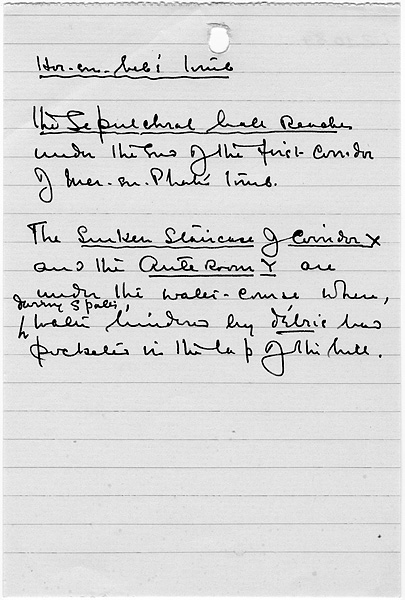 Hor-em-heb's Tomb
The Sepulchral hall reaches
under the end of the first corridor
of Mer-en-Ptah's Tomb.
The Sunken Staircase of Corridor X
and the Ante Room Y are
under the water-course where,
during spates,
water hindered by débris has
pocketed in the lap of the hill.